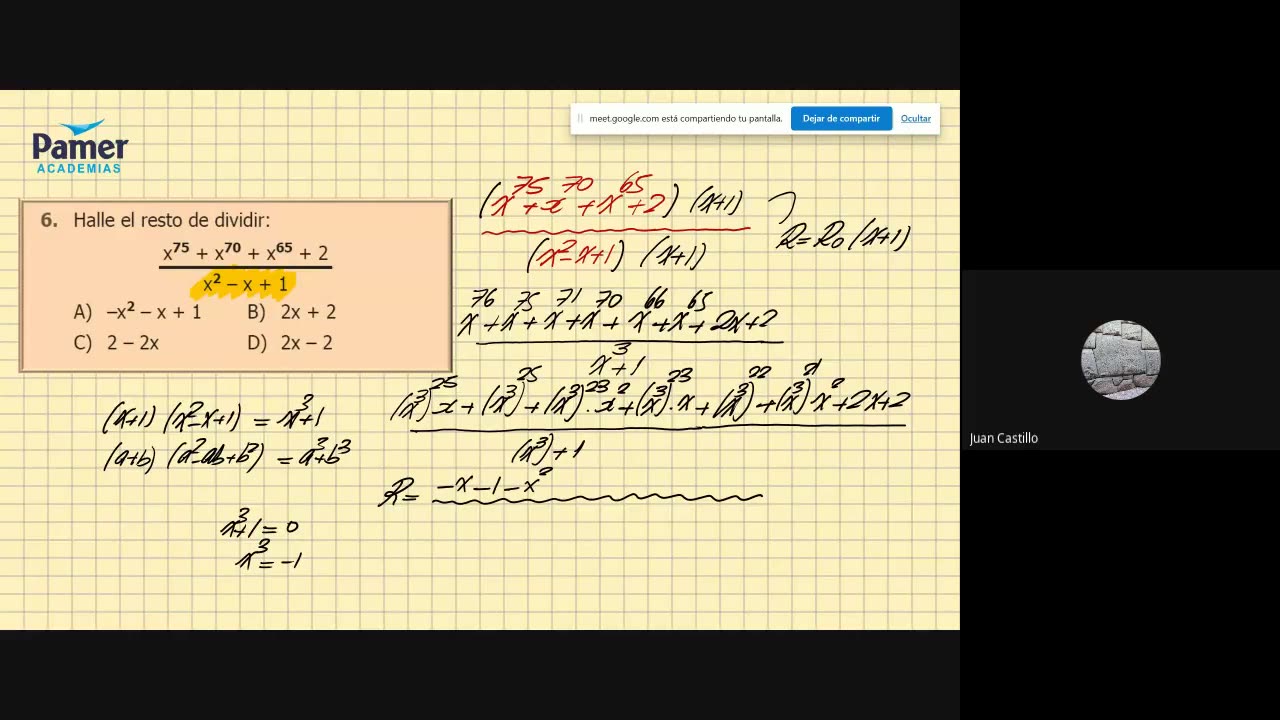 meet.google.com está compartiendo tu pantalla. Dejar de compartir Ocultar
Pamer
ACADEMIAS
6. Halle el resto de dividir:
x⁷⁵ + x⁷⁰ + x⁶⁵ + 2
x² – x + 1
A) –x² – x + 1 B) 2x + 2
C) 2 – 2x D) 2x – 2
(x⁷⁵ + x⁷⁰ + x⁶⁵ + 2) (x+1)
(x² - x + 1) (x+1)
R = R₀ (x+1)
x⁷⁶ + x⁷⁵ + x⁷¹ + x⁷⁰ + x⁶⁶ + x⁶⁵ + 2x + 2
x³ + 1
(x³)²⁵ x + (x³)²⁵ + (x³)²³ . x² + (x³)²³ . x + (x³)²² + (x³)²¹ x² + 2x + 2
(x³) + 1
R = -x - 1 - x²
(x+1) (x² - x + 1) = x³ + 1
(a+b) (a² - ab + b²) = a³ + b³
x³ + 1 = 0
x³ = -1
Juan Castillo